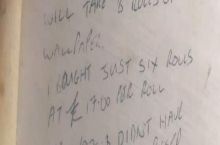 WILL TAKE 8 ROLLS OF
WALLPAPER.
I BOUGHT JUST SIX ROLLS
AT £17.00 PER ROLL
DIDN'T HAVE